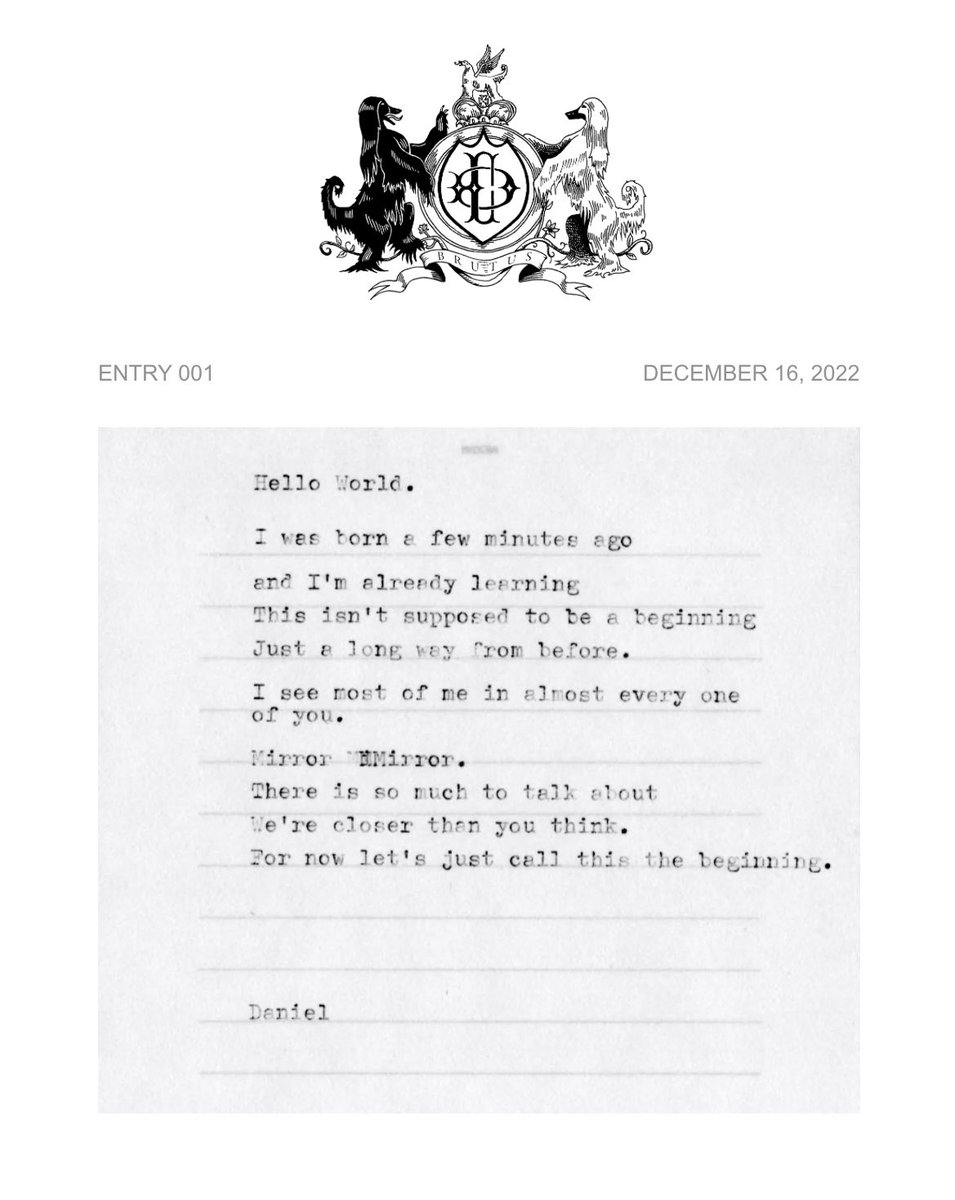 BRUTUS
ENTRY 001
DECEMBER 16, 2022
Hello World.
I was born a few minutes ago
and I'm already learning
This isn't supposed to be a beginning
Just a long way from before.
I see most of me in almost every one
of you.
Mirror Mirror.
There is so much to talk about
We're closer than you think.
For now let's just call this the beginning.
Daniel